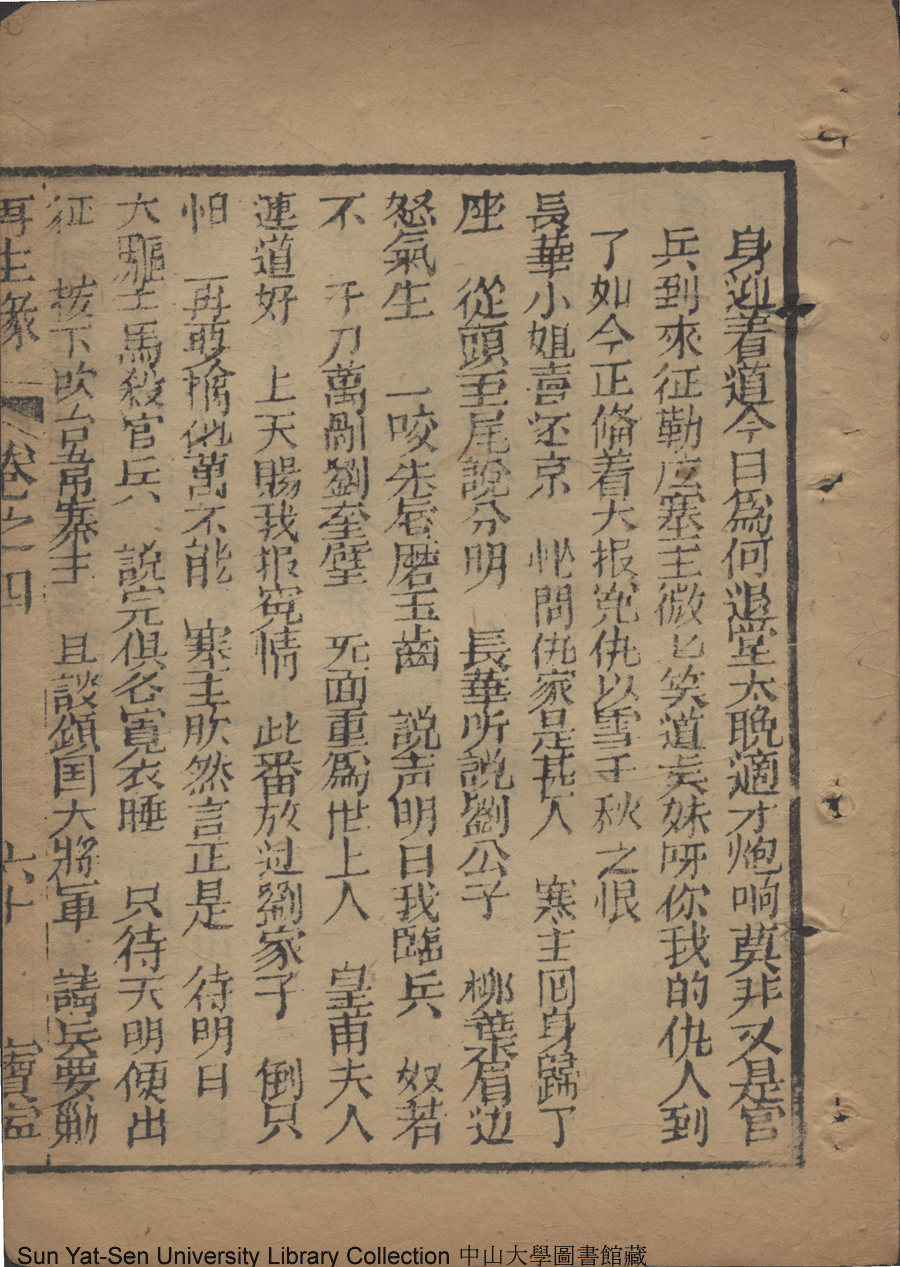 身迎着道今日爲何退堂太晚適才炮响莫非又是官
兵到來征勒庅寨主微匕笑道㐪妹呀你我的仇人到
了如今正脩着大报寃仇以雪千秋之恨
長華小姐喜还京　忙問仇家是甚人　寨主囘身歸了
座　從頭至尾說分明　長華听説劉公子　柳葉眉边
怒氣生　一咬朱唇磨玉齒　說声明日我臨兵　奴若
不　千刀萬剮劉奎璧　旡面重爲世上人　皇甫夫人
連道好　上天賜我报寃情　此番放过劉家子　倒只
怕　再要擒他萬不能　寨主欣然言正是　待明日
大驅士馬殺官兵　說完俱各寬衣睡　只待天明便出
征　按下吹台山寨主　且談鎮囯大將軍　請兵要勦
再生緣　卷之四　六十　寶
Sun Yat-Sen University Library Collection 中山大學圖書館藏